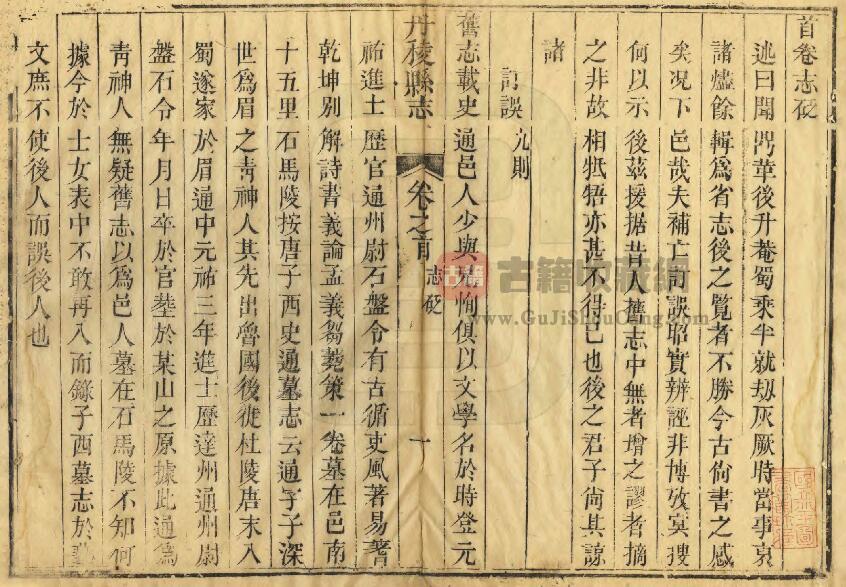 首卷志砭
述曰聞兵革後升菴蜀乘半就刼灰厥時當事哀
諸燼餘輯爲省志後之覽者不勝今古尙書之感
矣况下邑哉夫補亡訂誤昭實辨誣非博攷冥搜
何以示後茲援据昔人舊志中無者增之謬者摘
之非故相牴牾亦甚不得已也後之君子尙其諒
諸
訂誤九則
舊志載史通邑人少與兄恂俱以文學名於時登元
丹稜縣志
卷之首
志砭
一
祐進士歷官通州尉石盤令有古循吏風著易蓍
乾坤别解詩書義論孟義芻蕘策一卷墓在邑南
十五里石馬陵按唐子西史通墓志云通字子深
世爲眉之靑神人其先出魯國後徙杜陵唐末入
蜀遂家於眉通中元祐三年進士歷達州通州尉
盤石令年月日卒於官塟於某山之原據此通爲
靑神人無疑舊志以爲邑人墓在石馬陵不知何
據今於士女表中不敢再入而錄子西墓志於
文庶不使後人而誤後人也
古籍
古籍收藏網
www.GuJiShouCang.com